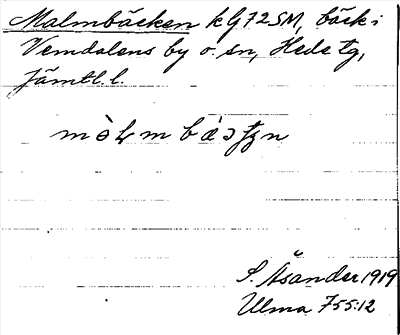 Malmbäcken kG72SM, bäck i
Vemdalens by o. sn, Hede tg,
Jämtl. l.
S. Åsander 1919
Ulma 755:12